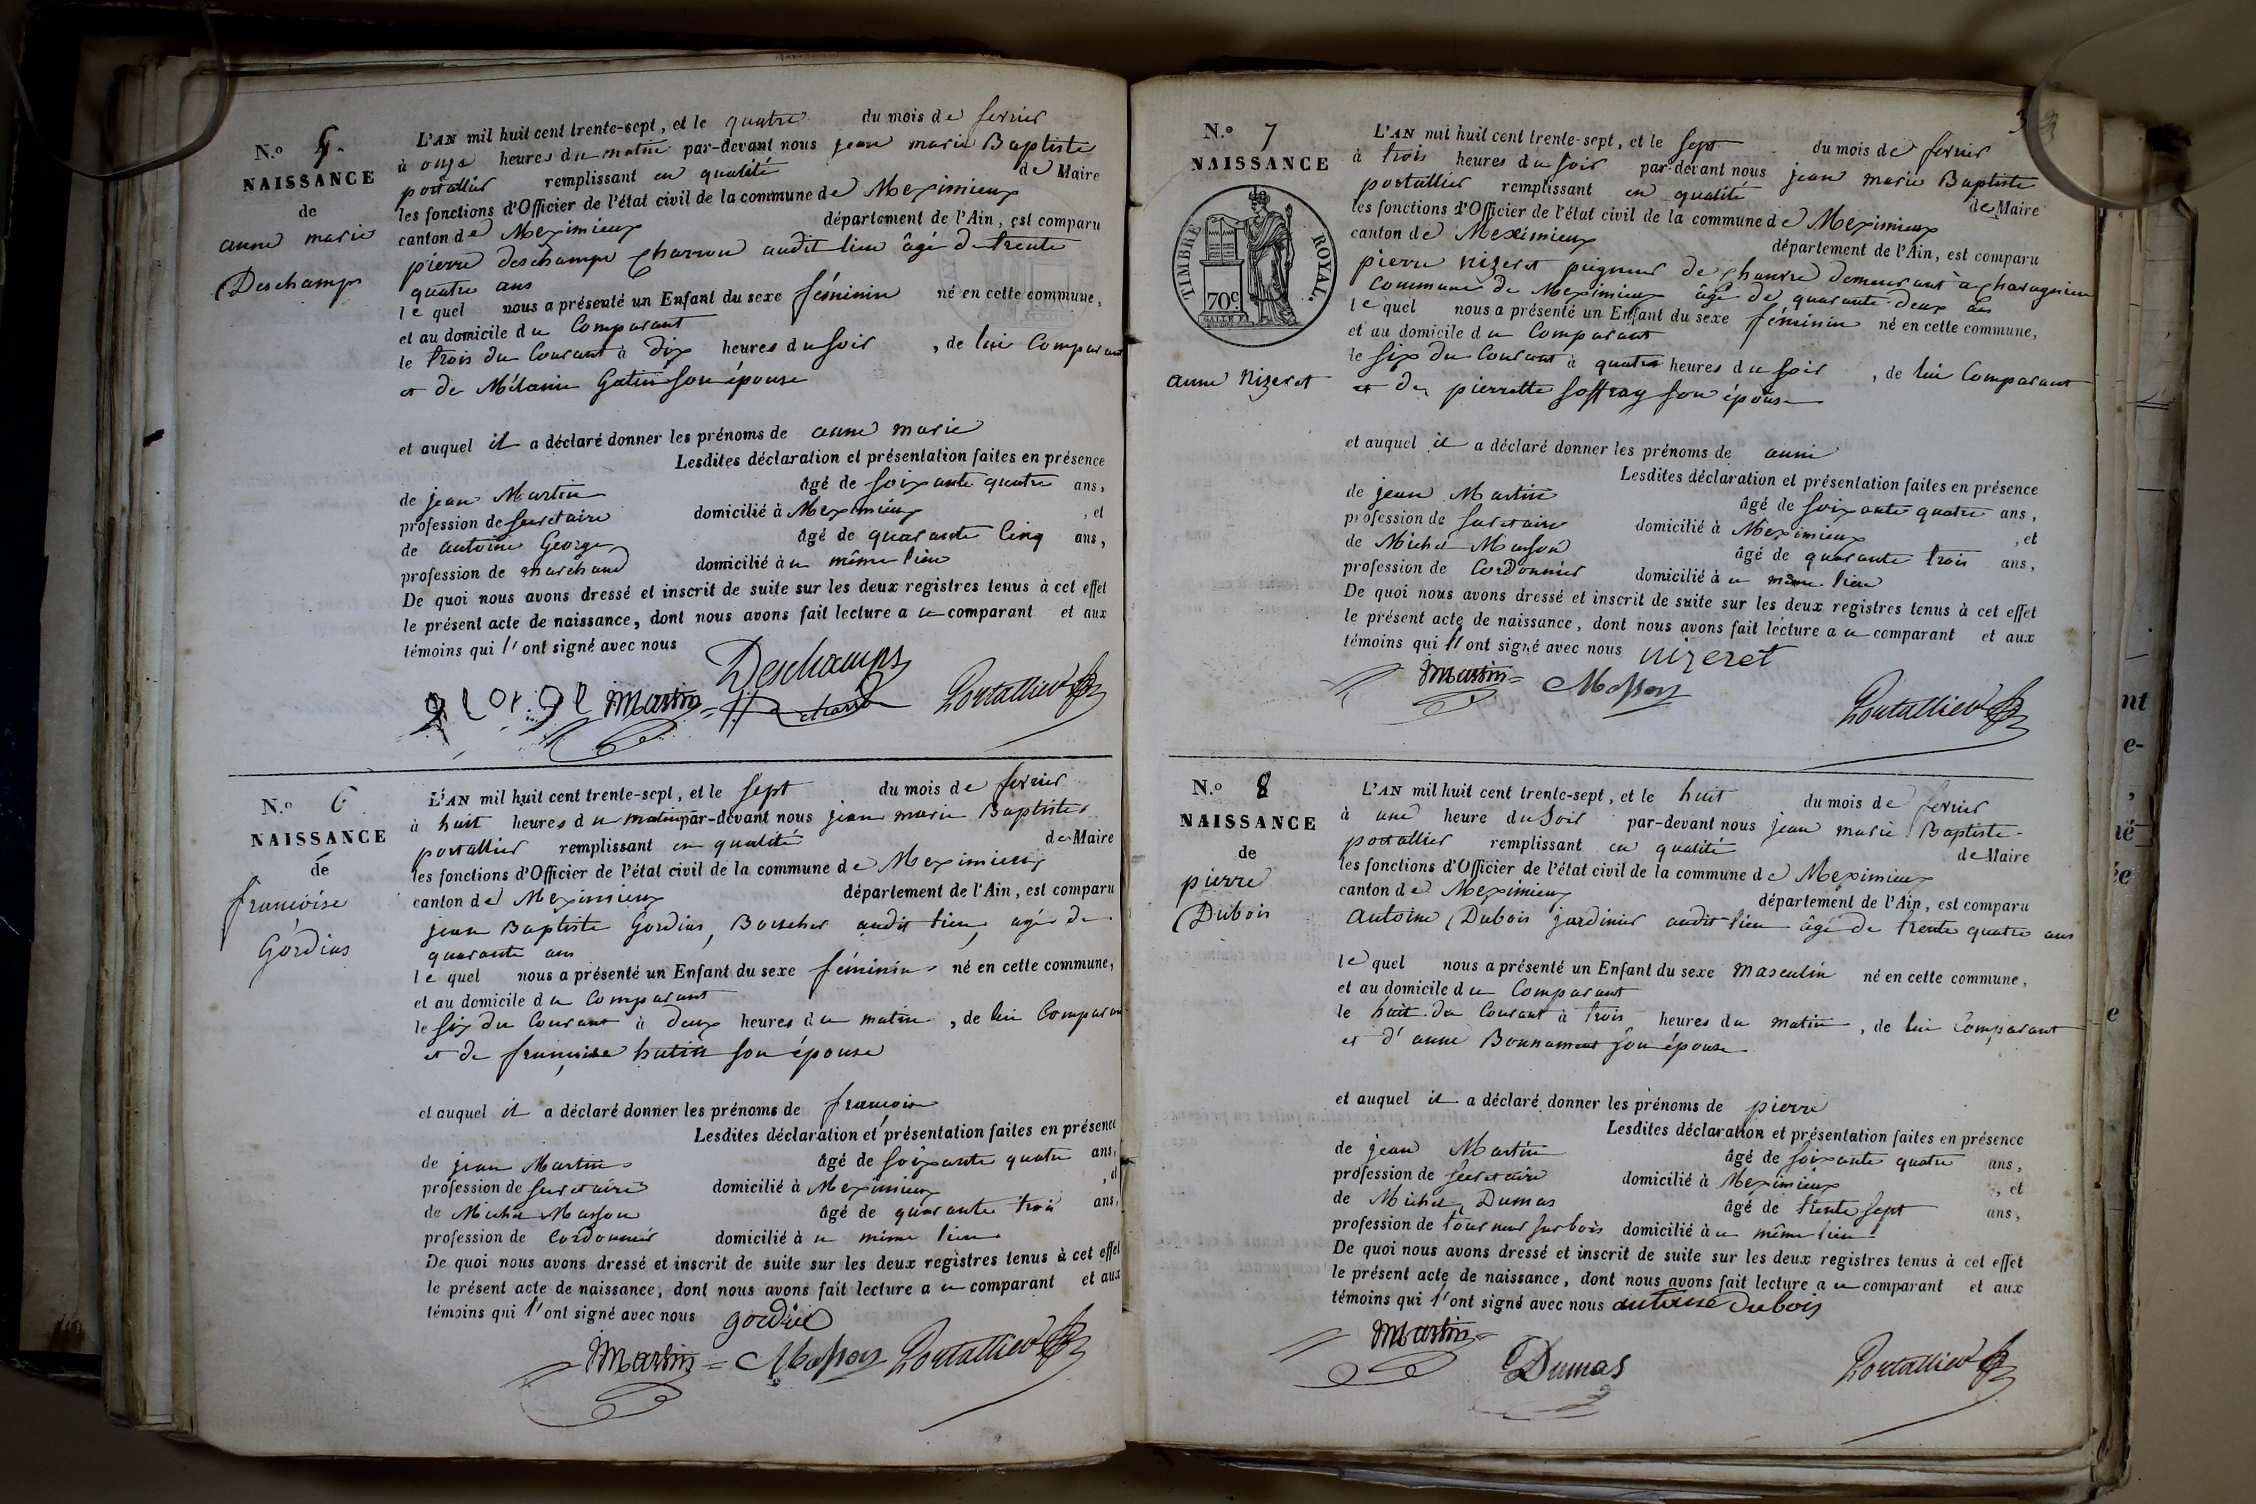 N.o 5.
NAISSANCE
de
anne marie
Deschamps
L'AN mil huit cent trente-sept, et le quatre du mois de fevrier
à onze heures du matin par-devant nous jean marie Baptiste
portallier remplissant en qualité de Maire
les fonctions d'Officier de l'état civil de la commune de Meximieux
canton de Meximieux département de l'Ain, est comparu
pierre deschamps charron audit lieu âgé de trente
quatre ans
lequel nous a présenté un Enfant du sexe féminin né en cette commune,
et au domicile du Comparant
le trois du Courant à dix heures du soir, de lui Comparant
et de Mélanie Gatin son épouse
et auquel il a déclaré donner les prénoms de anne marie
Lesdites déclaration et présentation faites en présence
de jean Martin âgé de soixante quatre ans,
profession de secretaire domicilié à Meximieux, et
de antoine George âgé de quarante cinq ans,
profession de marchand domicilié à ce même lieu
De quoi nous avons dressé et inscrit de suite sur les deux registres tenus à cet effet
le présent acte de naissance, dont nous avons fait lecture a ce comparant et aux
témoins qui l'ont signé avec nous
Deschamps
george Martin charron Portallier
N.o 6
NAISSANCE
de
francoise
Gordias
L'AN mil huit cent trente-sept, et le sept du mois de fevrier
à huit heures du matin par-devant nous jean marie Baptiste
portallier remplissant en qualité de Maire
les fonctions d'Officier de l'état civil de la commune de Meximieux
canton de Meximieux département de l'Ain, est comparu
jean Baptiste Gordias, Boucher audit lieu, agé de
quarante ans
lequel nous a présenté un Enfant du sexe féminin né en cette commune,
et au domicile du Comparant
le six du Courant à deux heures du matin, de lui Comparant
et de françoise hutin son épouse
et auquel il a déclaré donner les prénoms de francoise
Lesdites déclaration et présentation faites en présence
de jean Martin âgé de soixante quatre ans,
profession de secretaire domicilié à Meximieux, et
de Michel Masson âgé de quarante trois ans,
profession de Cordonnier domicilié à ce même lieu
De quoi nous avons dressé et inscrit de suite sur les deux registres tenus à cet effet
le présent acte de naissance, dont nous avons fait lecture a ce comparant et aux
témoins qui l'ont signé avec nous
Martin Masson Portallier
N.o 7
NAISSANCE
TIMBRE ROYAL.
70c
anne Nizeret
L'AN mil huit cent trente-sept, et le sept du mois de fevrier
à trois heures du soir par-devant nous jean marie Baptiste
portallier remplissant en qualité de Maire
les fonctions d'Officier de l'état civil de la commune de Meximieux
canton de Meximieux département de l'Ain, est comparu
pierre nizeret peigneur de chanvre demeurant à
commune de Meximieux âgé de quarante deux ans
lequel nous a présenté un Enfant du sexe féminin né en cette commune,
et au domicile du Comparant
le six du Courant à quatre heures du soir, de lui Comparant
et de pierrette soffray son épouse
et auquel il a déclaré donner les prénoms de anne
Lesdites déclaration et présentation faites en présence
de jean Martin âgé de soixante quatre ans,
profession de secretaire domicilié à Meximieux, et
de Michel Masson âgé de quarante trois ans,
profession de Cordonnier domicilié à ce même lieu
De quoi nous avons dressé et inscrit de suite sur les deux registres tenus à cet effet
le présent acte de naissance, dont nous avons fait lecture a ce comparant et aux
témoins qui l'ont signé avec nous nizeret
Martin Masson Portallier
N.o 8
NAISSANCE
de
pierre
Dubois
L'AN mil huit cent trente-sept, et le huit du mois de fevrier
à une heure du soir par-devant nous jean marie Baptiste
portallier remplissant en qualité de Maire
les fonctions d'Officier de l'état civil de la commune de Meximieux
canton de Meximieux département de l'Ain, est comparu
Antoine Dubois jardinier audit lieu âgé de trente quatre ans
lequel nous a présenté un Enfant du sexe masculin né en cette commune,
et au domicile du Comparant
le huit du Courant à trois heures du matin, de lui Comparant
et d'anne Bonnament son épouse
et auquel il a déclaré donner les prénoms de pierre
Lesdites déclaration et présentation faites en présence
de jean Martin âgé de soixante quatre ans,
profession de secretaire domicilié à Meximieux, et
de Michel Dumas âgé de trente sept ans,
profession de tourneur sur bois domicilié à ce même lieu
De quoi nous avons dressé et inscrit de suite sur les deux registres tenus à cet effet
le présent acte de naissance, dont nous avons fait lecture a ce comparant et aux
témoins qui l'ont signé avec nous antoine Dubois
Martin Dumas Portallier